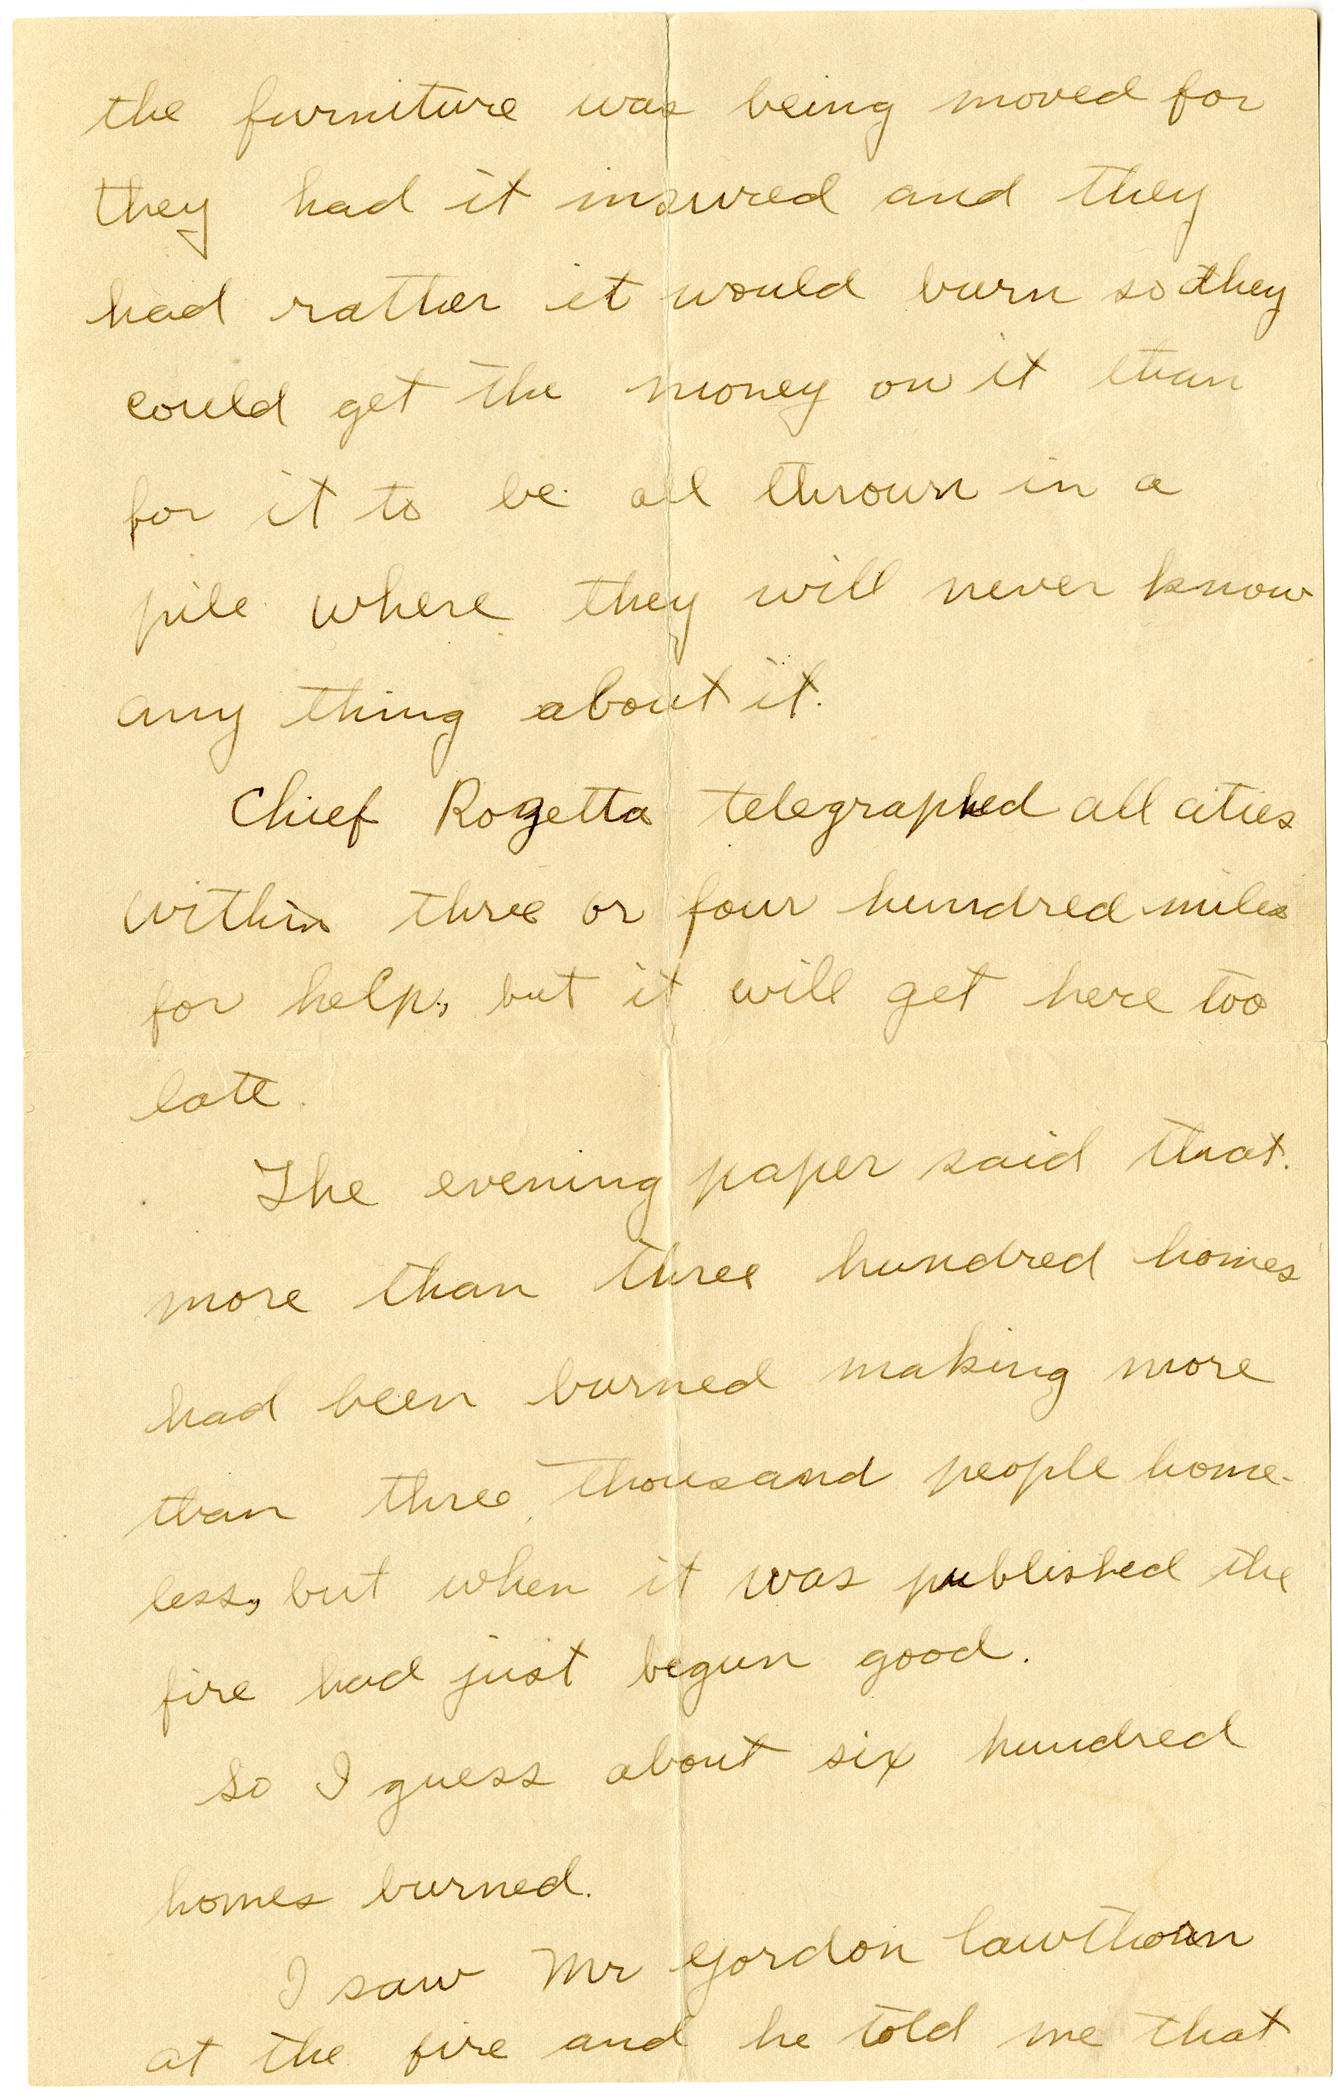 the furniture was being moved for
they had it insured and they
had rather it would burn so they
could get the money on it than
for it to be all thrown in a
pile where they will never know
any thing about it.
Chief Rozetta telegraphed all cities
within three or four hundred miles
for help, but it will get here too
late.
The evening paper said that
more than three hundred homes
had been burned making more
than three thousand people home-
less, but when it was published the
fire had just begun good.
So I guess about six hundred
homes burned.
I saw Mr Gordon Lawthorn
at the fire and he told me that